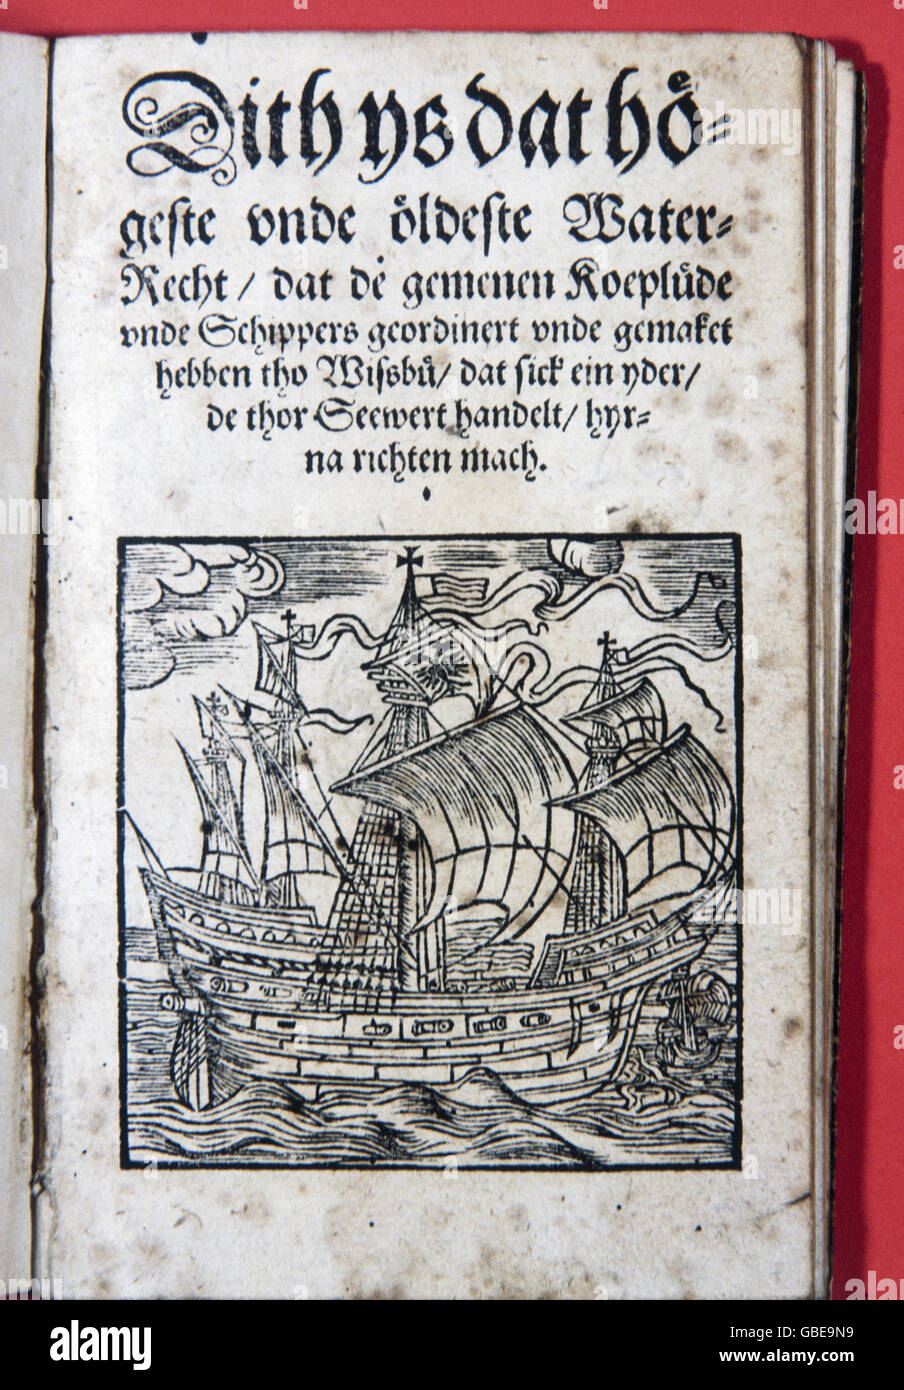 Dith ys dat hö-
geste vnde öldeste Water-
Recht / dat dė gemenen Koeplůde
vnde Schippers geordinert vnde gemaket
hebben tho Wißbů / dat sick ein yder /
de thor Seewert handelt / hyr-
na richten mach.
alamy
Image ID: GBE9N9
www.alamy.com